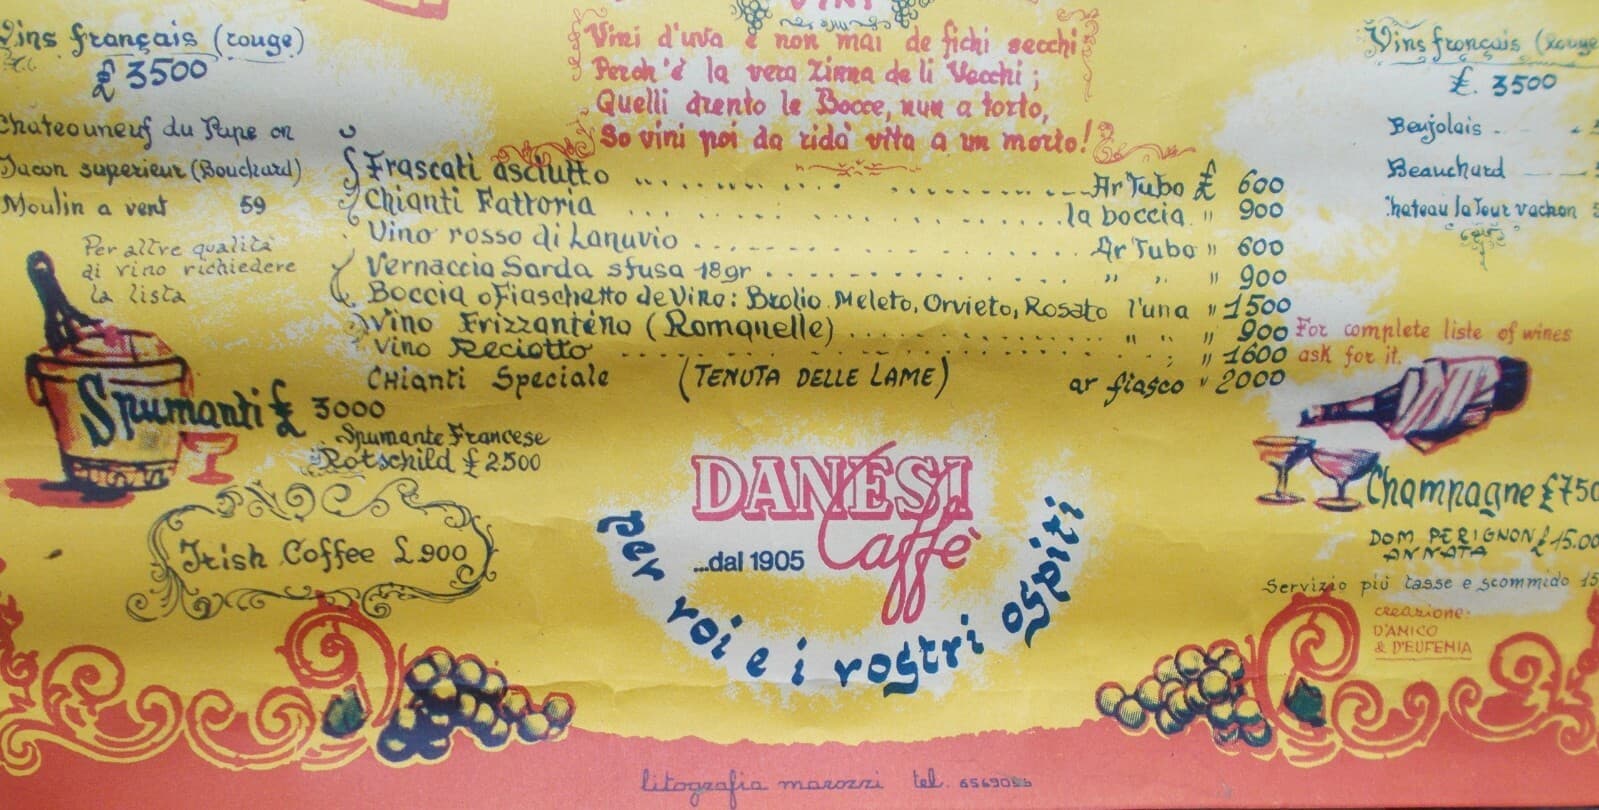 VINI
Vins français (rouge)
£ 3500
Chateouneuf du Pape on
Jacon superieur (Bouchard)
Moulin a vent 59
Per altre qualità
di vino richiedere
la lista
Vini d'uva e non mai de fichi secchi
Perch'è la vera Zinna de li Vecchi;
Quelli drento le Bocce, nun a torto,
So vini poi da ridà vita a un morto!
Frascati asciutto ... Ar Tubo £ 600
Chianti Fattoria ... la boccia " 900
Vino rosso di Lanuvio ... Ar Tubo " 600
Vernaccia Sarda sfusa 18gr ... " " " 900
Boccia o Fiaschetto de Vino: Brolio Meleto, Orvieto, Rosato l'una " 1500
Vino Frizzantino (Romanelle) ... " " " 900
Vino Reciotto ... " " 1600
Chianti Speciale (TENUTA DELLE LAME) ar fiasco " 2000
Vins français (rouge
£. 3500
Beujolais
Beauchard
hateau la Tour vachon
For complete liste of wines
ask for it.
Spumanti £ 3000
Spumante Francese
Rotschild £ 2500
Irish Coffee £.900
DANESI
Caffè
...dal 1905
per voi e i vostri ospiti
Champagne £750
DOM PERIGNON £15.00
ANNATA
Servizio più tasse e scommido 15
creazione.
D'AMICO
& D'EUFEMIA
litografia marozzi tel.